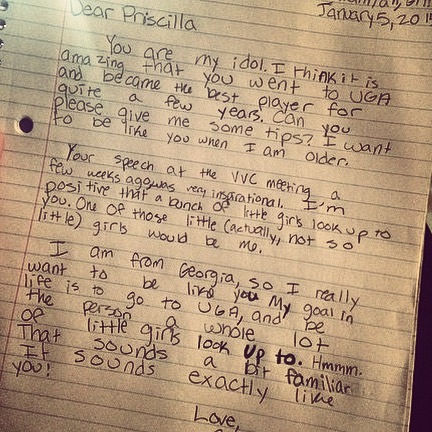 January 5, 201
Dear Priscilla
You are my idol. I think it is
amazing that you went to UGA
and became the best player for
quite a few years. Can you
please give me some tips? I want
to be like you when I am older.
Your speech at the VVC meeting a
few weeks ago was very inspirational. I'm
positive that a bunch of little girls look up to
you. One of those little (actually, not so
little) girls would be me.
I am from Georgia, so I really
want to be like you. My goal in
life is to go to UGA, and be
the person a whole lot
of little girls look up to. Hmmm.
That sounds a bit familiar.
It sounds exactly like
you!
Love,